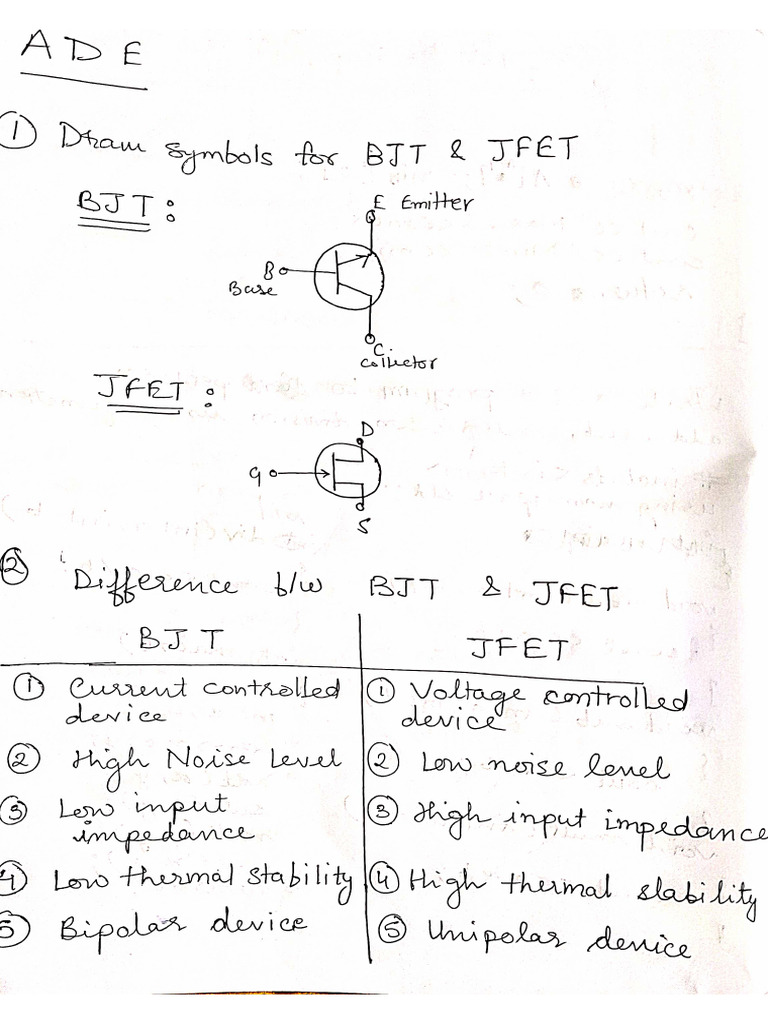 ADE
① Draw symbols for BJT & JFET
BJT:
E Emitter
B
Base
C
Collector
JFET:
D
G
S
② Difference b/w BJT & JFET
BJT
JFET
① Current controlled
device
① Voltage controlled
device
② High Noise Level
② Low noise level
③ Low input
impedance
③ High input impedance
④ Low thermal stability
④ High thermal stability
⑤ Bipolar device
⑤ Unipolar device